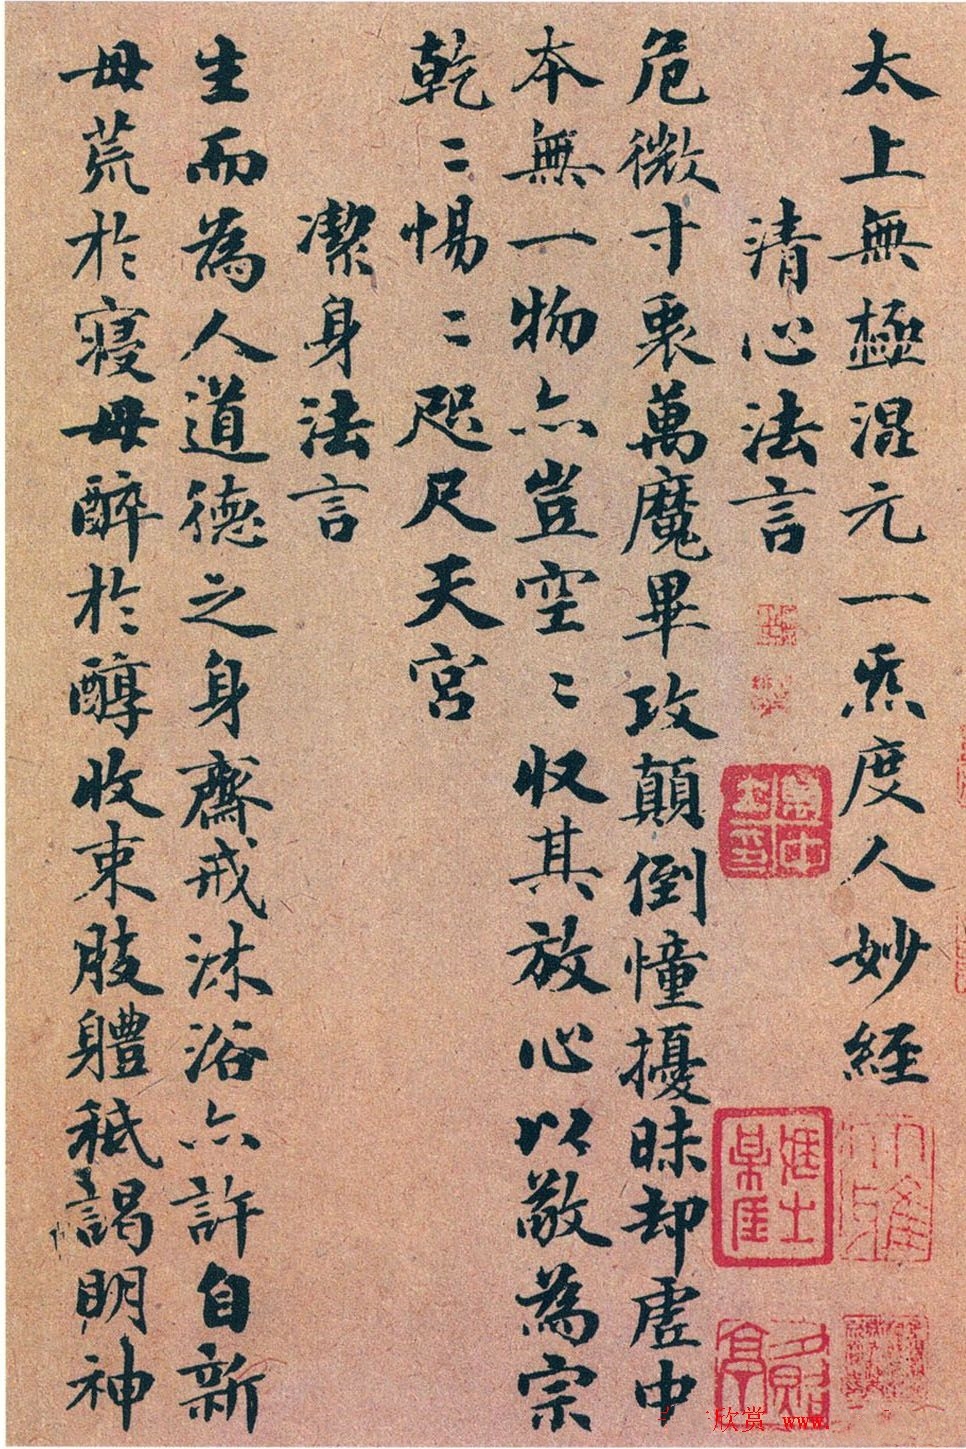 太上無極混元一炁度人妙經
清心法言
危微寸衷萬魔畢攻顛倒憧擾昧却虛中
本無一物亦豈空〻收其放心以敬為宗
乾〻惕〻咫尺天宮
潔身法言
生而為人道德之身齋戒沐浴亦許自新
毋荒於寢毋醉於醇收束肢體秪謁明神
欣赏 www